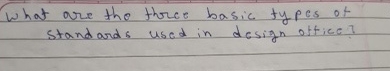 What are the three basic types of
standards used in design office?